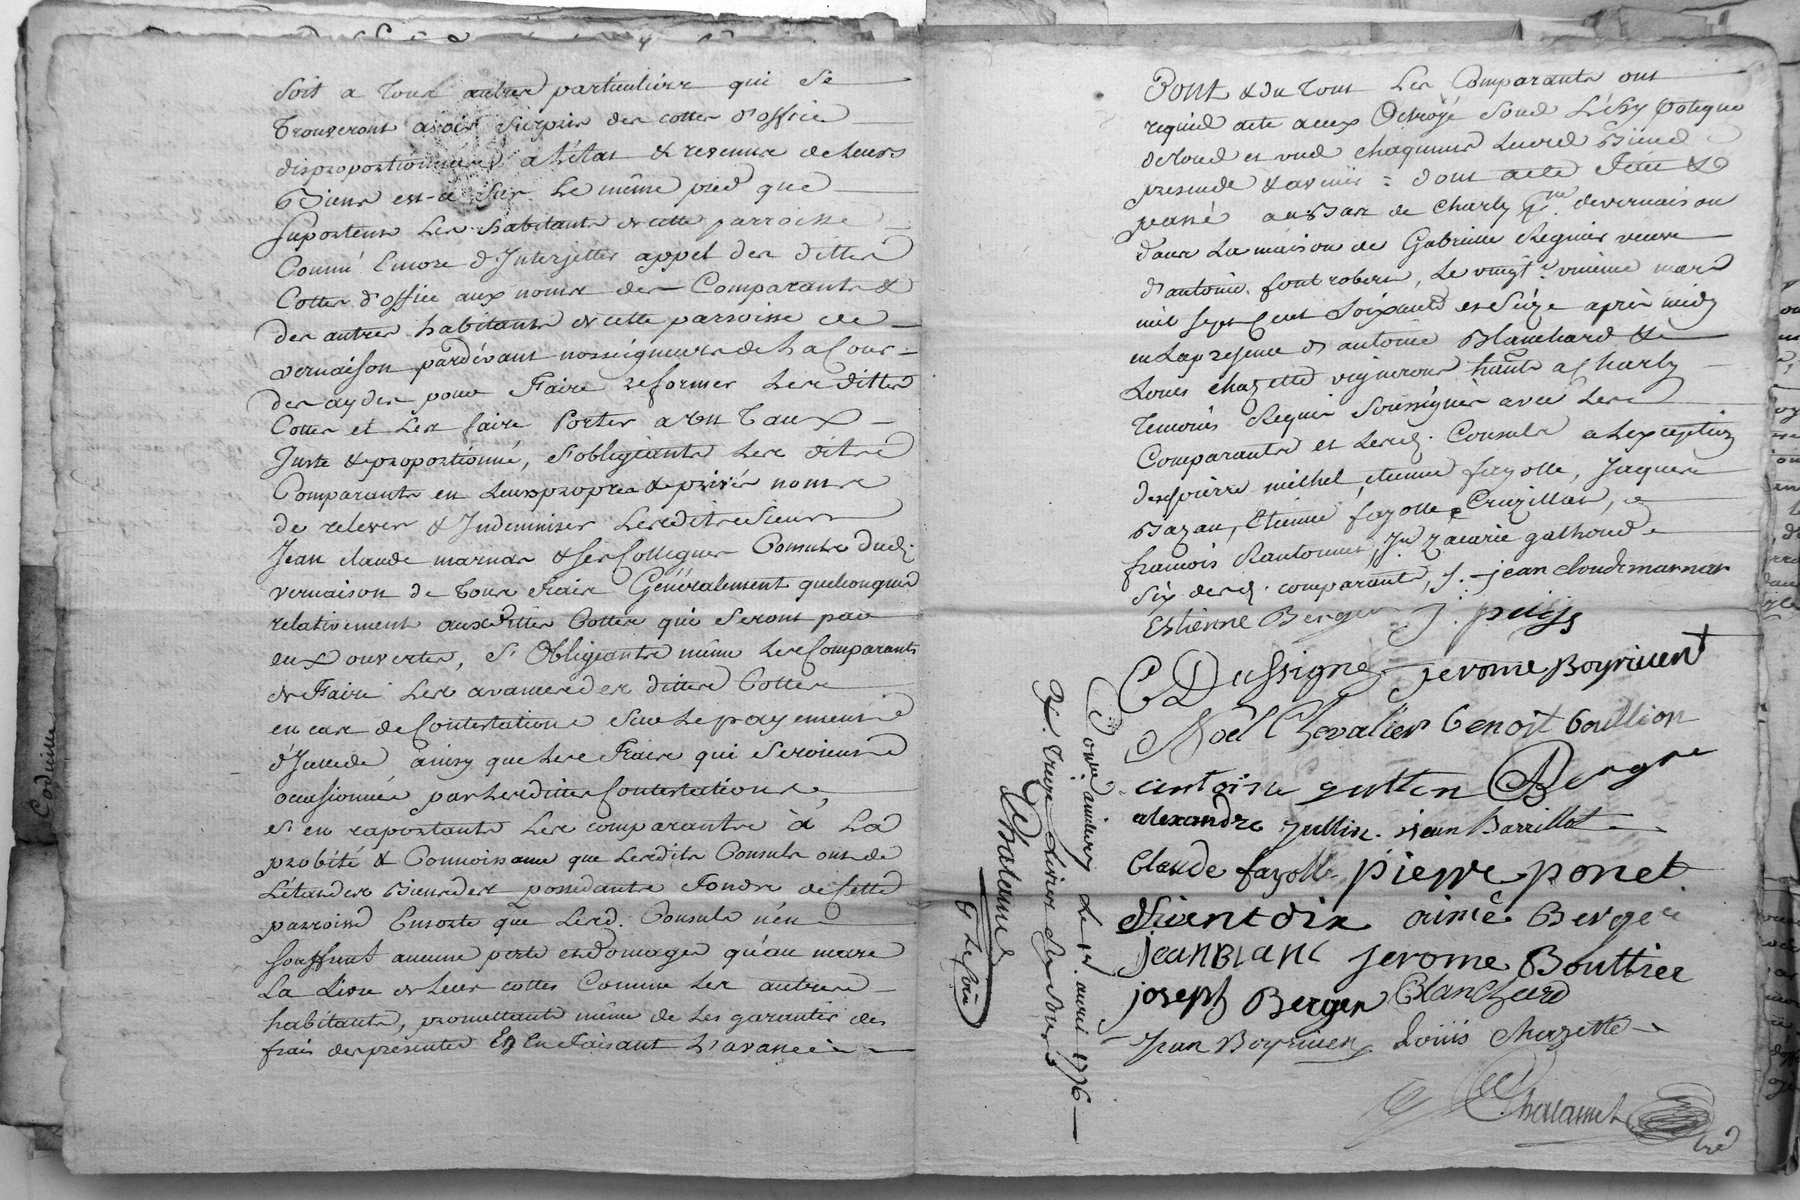 soit a tous autres particuliers qui se
trouveront avoir surpris des cottes d'office
disproportionnées a l'état & revenus de leurs
Biens est-ce sur le même pied que
suportent les habitants de cette parroisse
Comme Encore d'Interjetter appel des dittes
Cottes d'office aux noms des Comparants &
des autres habitants de cette parroisse de
vernaison pardevant nosseigneurs de la Cour
des aydes pour Faire reformer les dittes
Cottes et les faire Porter a un Taux
Juste & proportionné, s'obligeants les dits
Comparants en leurs propres & privés noms
de relever & Indemniser lesdits sieurs
Jean claude marnas & ses Collegues Consuls dud.
vernaison de tous frais Généralement quelconques
relativement auxdittes Cottes qui seront par
eux ouvertes, s'Obligeants même les Comparants
de Faire les avances des dittes Cottes
en cas de Contestations sur le payement
d'Icelles ainsy que les Frais qui seroient
occasionnés par lesdittes Contestations,
et en raportants les comparants à La
probité & Connoissance que lesdits Consuls ont de
L'étandue Biens des possedants Fonds de Cette
parroisse Ensorte que lesd. Consuls n'en
souffrent aucune perte et domages qu'au marc
La Livre de leurs cottes Comme les autres
habitants, promettants même de les garantir des
frais des presentes En En Faisant L'avance
Dont & du tout Les Comparants ont
requis acte a eux Octroyé sous
chaqu'uns leurs Biens
presents & avenir : dont acte Fait &
passé au de Charly de vernaison
dans La maison de Gabrielle Regnier veuve
d'antoine font robert, le vingt unième mars
mil sept Cent soixante et seize après midy
en La presence d'antoine Blanchard &
Louis chazette vignerons hants a Charly
Temoins Requis soussignés avec les
Comparants et lesd. Consuls a L'exception
des pierre michel, etienne fayolle, Jaques
Bazan, Etienne fayolle Cruzillat,
françois Rantonnet, zacarie gathoud
six desd. comparants, jean claude marnas
Estienne Berger J: puiss
C Dussigne jerome Boyrivent
Noël Chevalier benoit boullion
antoine gutten Berger
alexandre gullin. jean Barrillot
Claude fayolle pierre ponet
aimé Berger
jean Blanc jerome Bouttier
joseph Berger Blanchard
Jean Boyriven Louis Chazette
Chalamel
Nre
Controllé a Le 1er. avril 1776
Ré. treize Livres
Chalamel
Codicille